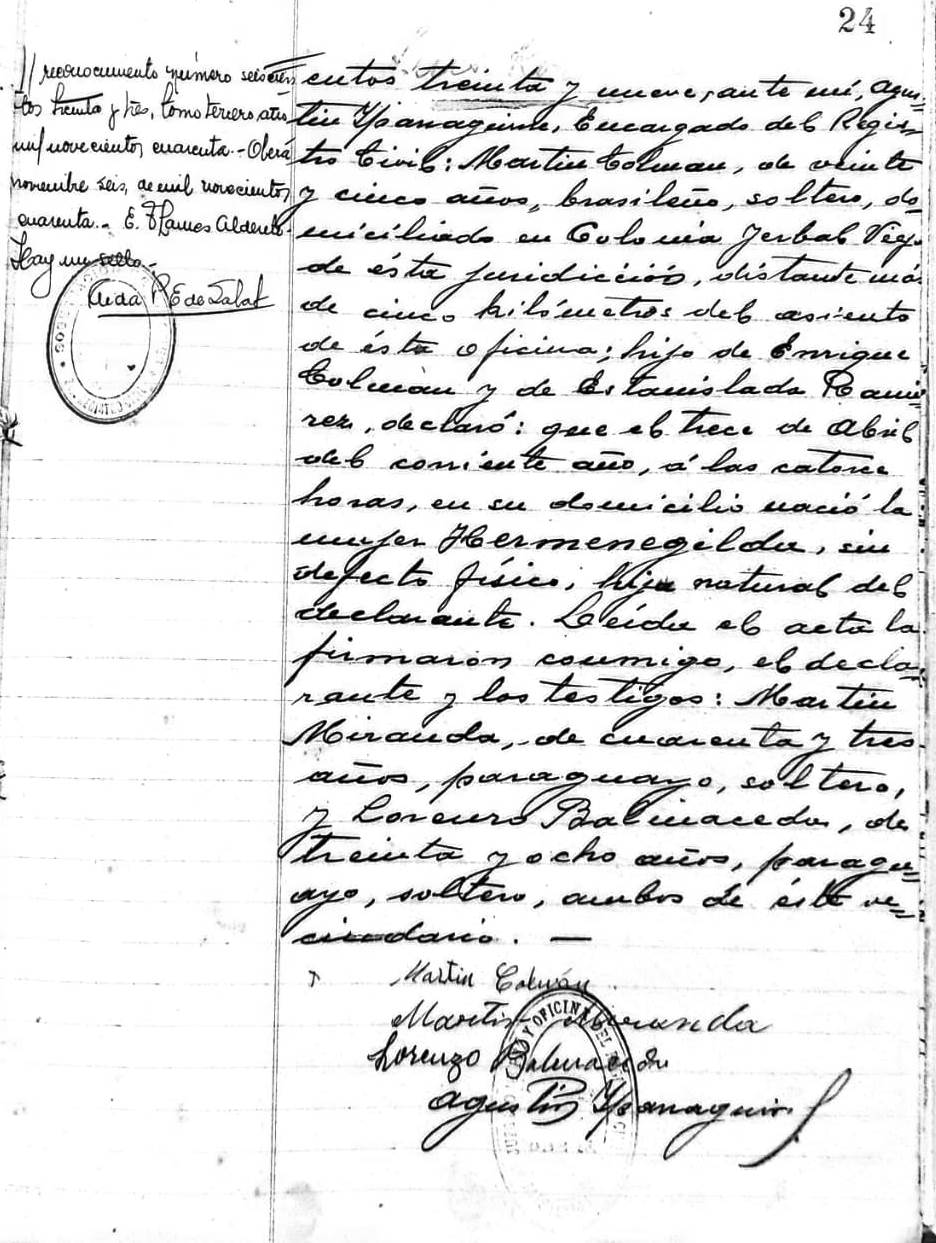 24
// reconocimiento número seiscien
tos treinta y tres, tomo tercero año
mil novecientos cuarenta.- Oberá
noviembre seis, de mil novecientos
cuarenta.- E. Ramos Alderete
Hay un sello.-
Aida R E de
cientos treinta y nueve, ante mí, Agus=
tin Ypanaguirre, Encargado del Regis=
tro Civil: Martin Colman, de veinte
y cinco años, brasileño, soltero, do=
miciliado en Colonia Yerbal Viejo
de ésta juridicción, distante más
de cinco kilómetros del asiento
de ésta oficina; hijo de Enrique
Colmán y de Estanislada Rami=
rez, declaró: que el trece de Abril
del corriente año, á las catorce
horas, en su domicilio nació la
mujer Hermenegilda, sin
defecto físico, hija natural del
declarante. Leída el acta la
firmaron conmigo, el decla=
rante y los testigos: Martin
Miranda, de cuarenta y tres
años, paraguayo, soltero,
y Lorenzo Balmaceda, de
treinta y ocho años, paragu=
ayo, soltero, ambos de éste ve=
cindario. —
Martin Colmán
Martin Miranda
Lorenzo Balmaceda
Agustin Ypanaguirre
Y OFICINA DEL